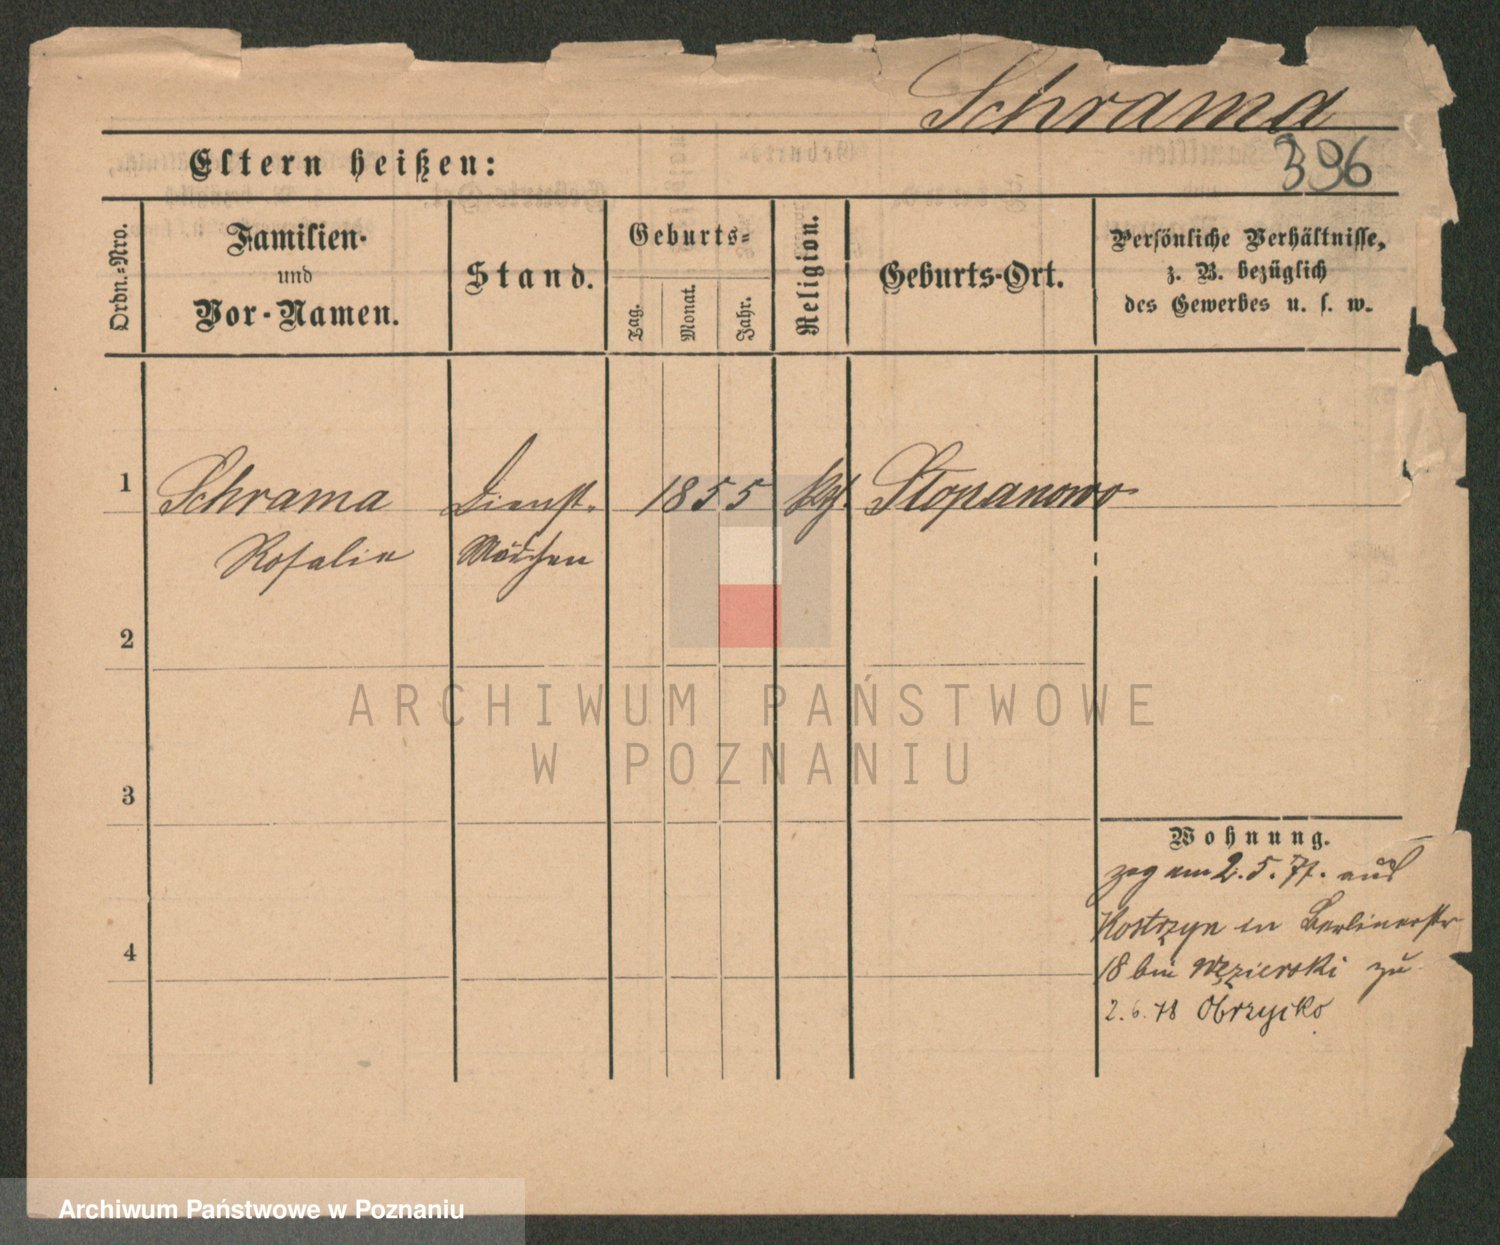 Schrama
396
Eltern heißen:
Ordn.=Nro.
Familien-
und
Vor-Namen.
Stand.
Geburts=
Tag.
Monat.
Jahr.
Religion.
Geburts-Ort.
Persönliche Verhältnisse,
z. B. bezüglich
des Gewerbes u. s. w.
1
Schrama
Dienst-
1855
kgl.
Stopanowo
Rosalie
Mädchen
2
ARCHIWUM PAŃSTWOWE
W POZNANIU
3
Wohnung.
zog am 2.5.77. aus
Kostrzyn in Berlinerstr
4
18 bei Węzierski zu
2.6.78 Obrzycko
Archiwum Państwowe w Poznaniu